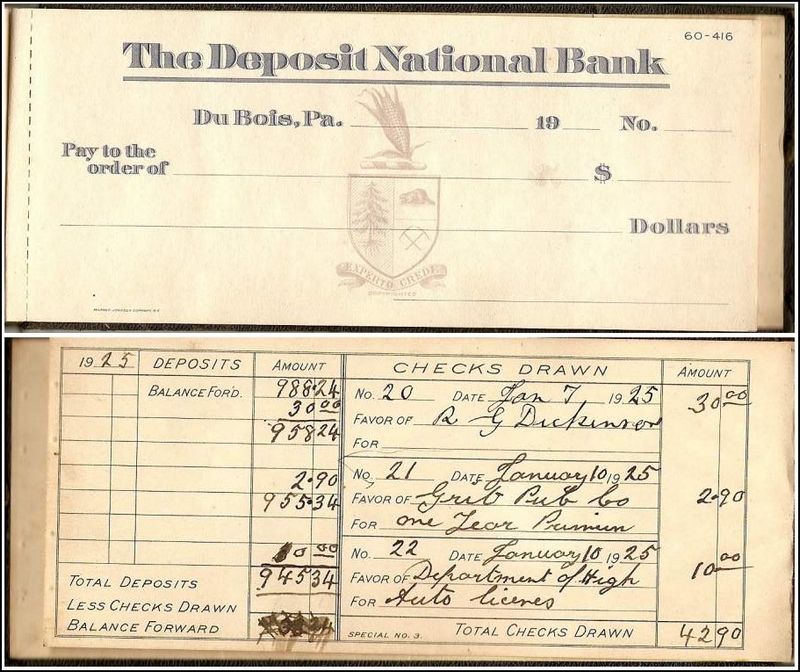 60-416
The Deposit National Bank
Du Bois, Pa. 19 No.
Pay to the
order of $
Dollars
EXPERTO CREDE
COPYRIGHTED
1925 DEPOSITS AMOUNT
BALANCE FOR'D. 988.24
30 00
958 24
2.90
955.34
10 00
945 34
TOTAL DEPOSITS
LESS CHECKS DRAWN
BALANCE FORWARD
CHECKS DRAWN AMOUNT
No. 20 DATE Jan 7 1925 30 00
FAVOR OF R G Dickinson
FOR
No. 21 DATE January 10 1925
FAVOR OF Grit Pub Co 2.90
FOR one Year Primiun
No. 22 DATE January 10 1925
FAVOR OF Department of High 10 00
FOR Auto licenes
SPECIAL NO. 3. TOTAL CHECKS DRAWN 42 90